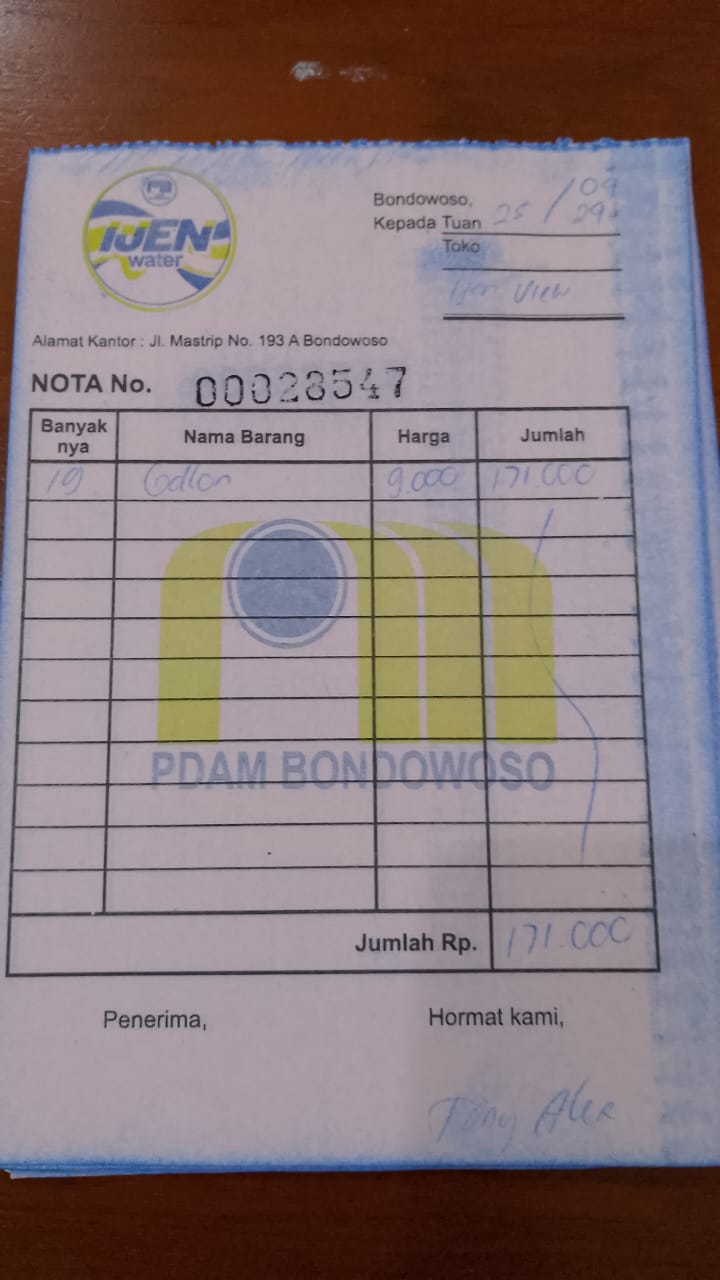 IJEN
water
Bondowoso, 25/09
Kepada Tuan
Toko
View
Alamat Kantor : Jl. Mastrip No. 193 A Bondowoso
NOTA No. 00028547
Banyak nya Nama Barang Harga Jumlah
19 Gallon 9.000 171.000
PDAM BONDOWOSO
Jumlah Rp. 171.000
Penerima, Hormat kami,